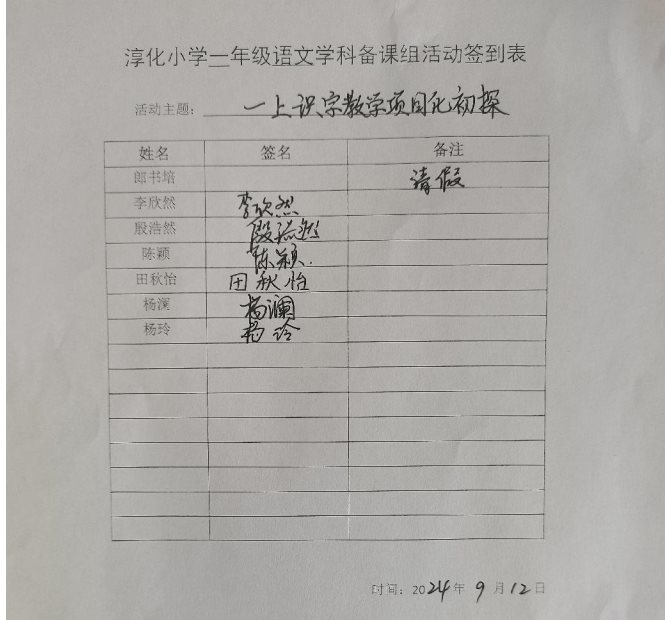 淳化小学一年级语文学科备课组活动签到表
活动主题：一上识字教学项目化初探
姓名 签名 备注
郎书培 请假
李欣然 李欣然
殷浩然 殷浩然
陈颖 陈颖
田秋怡 田秋怡
杨澜 杨澜
杨玲 杨玲
时间：2024年9月12日